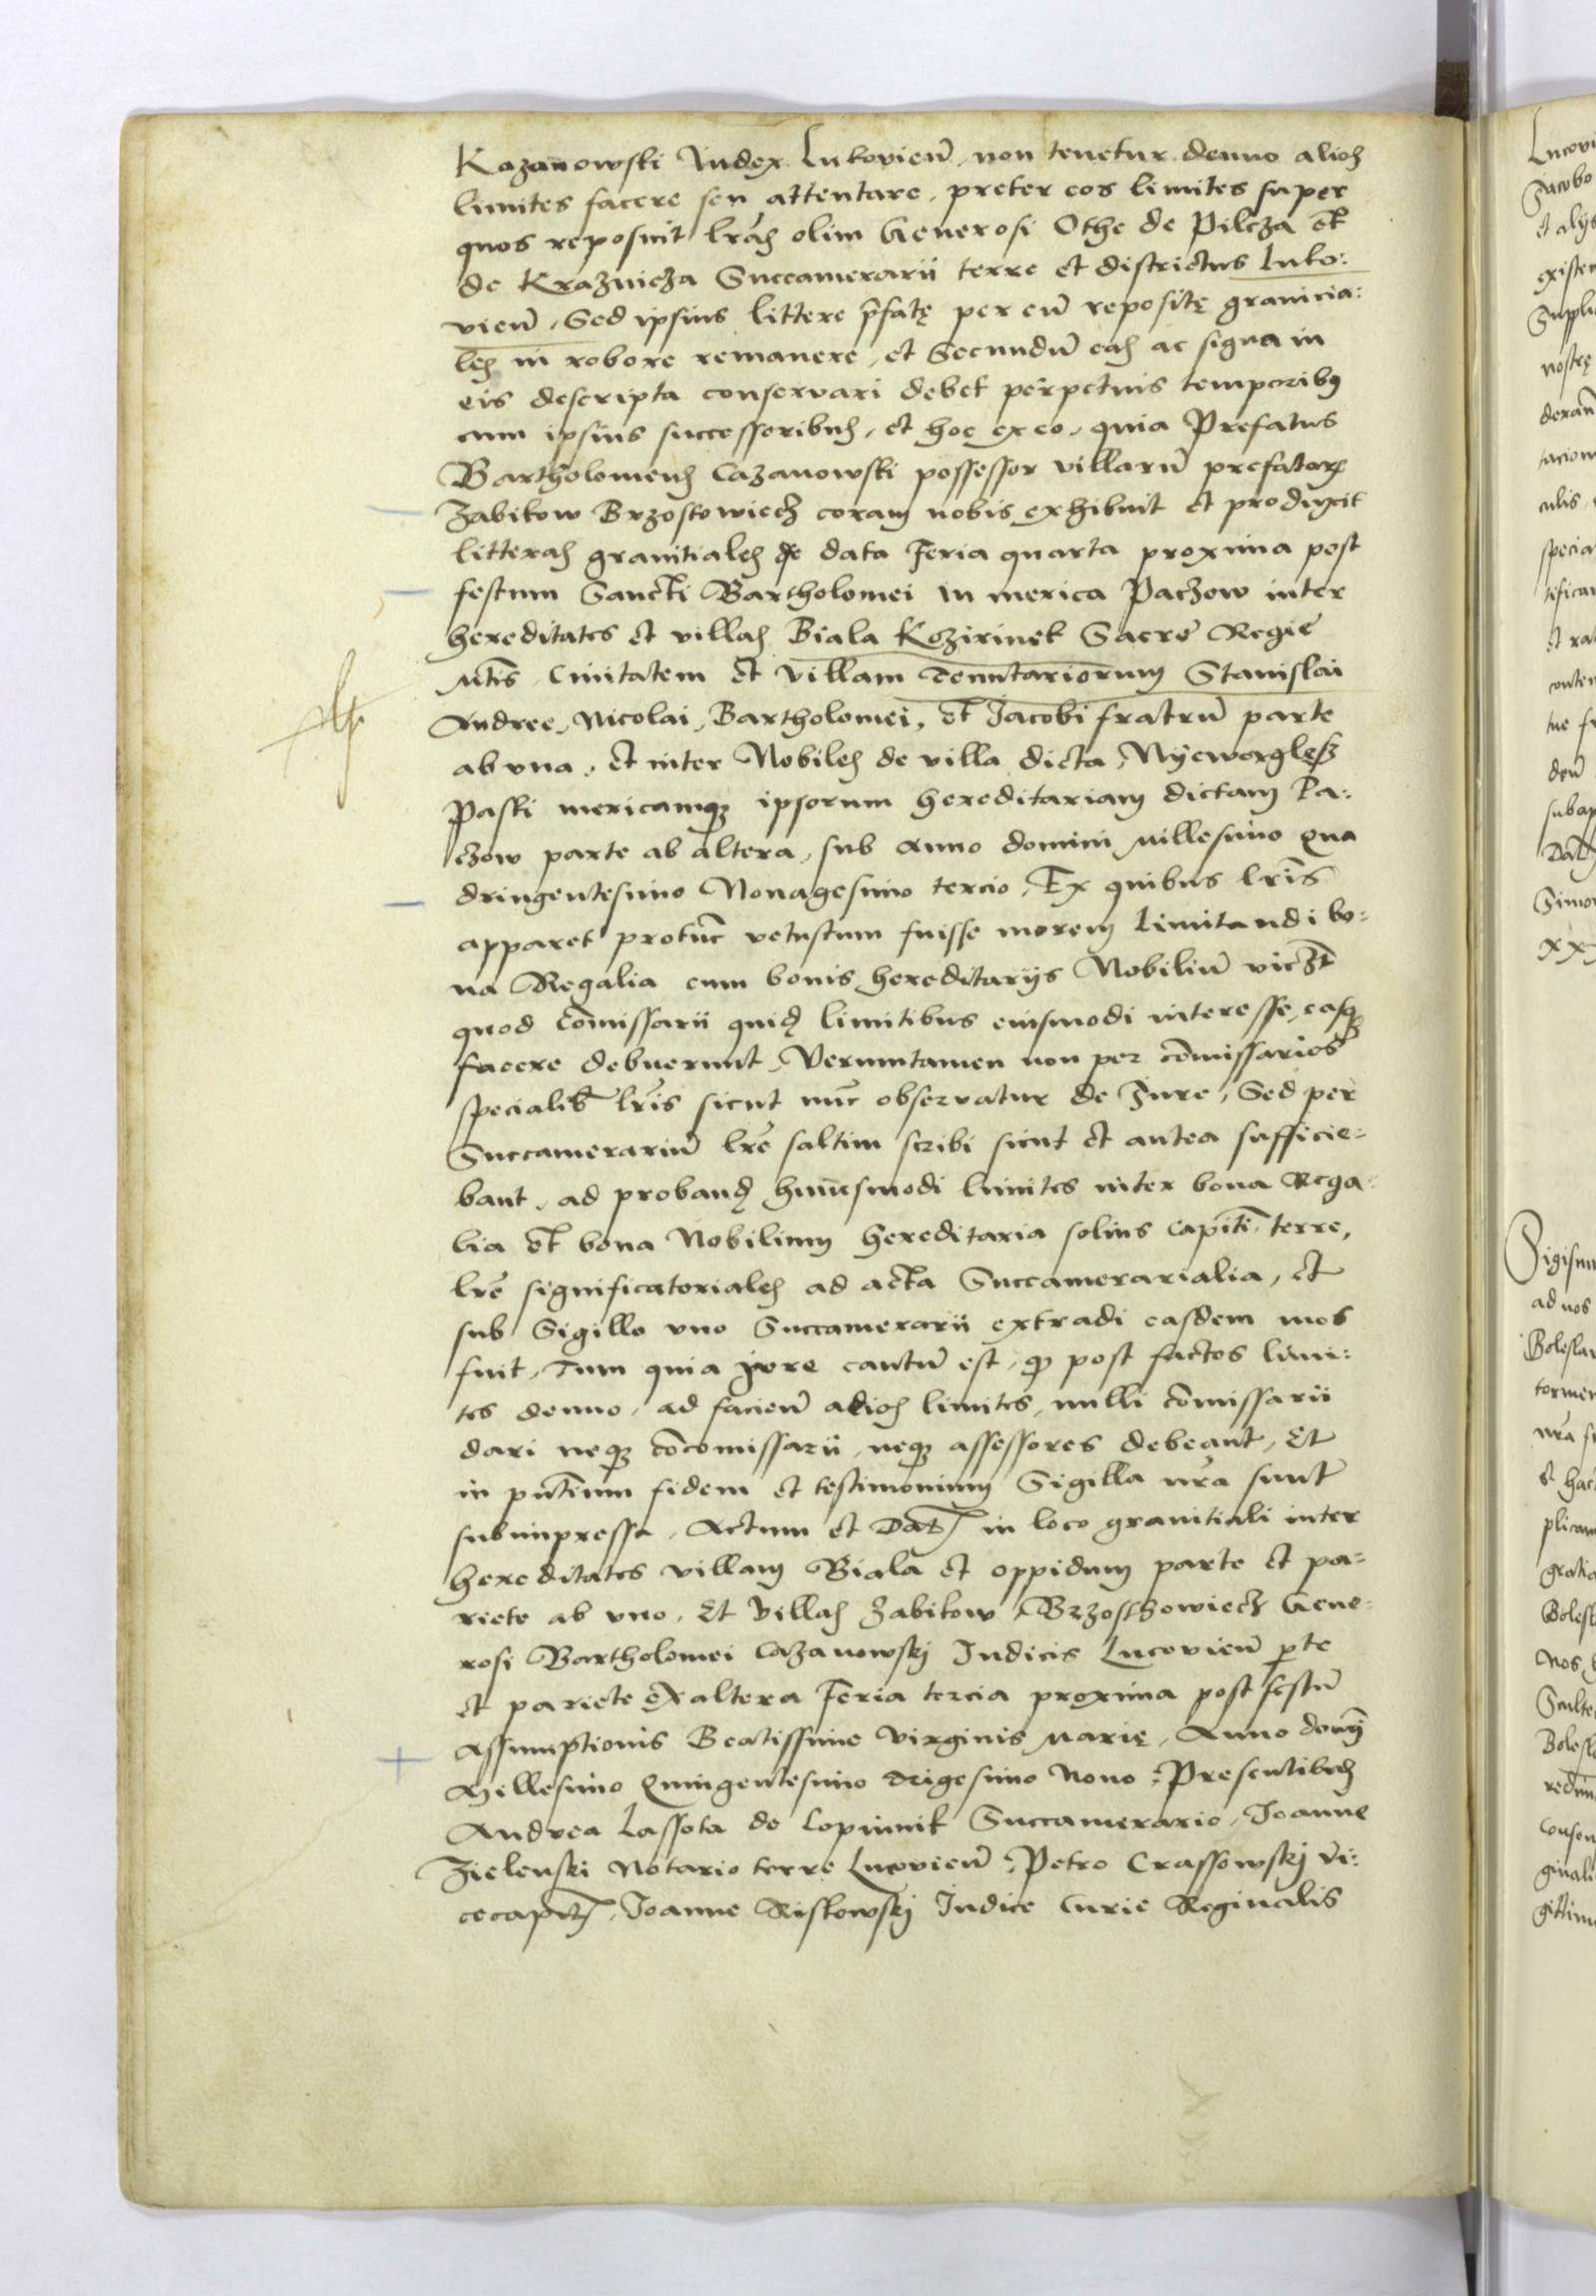 Kazanowski Iudex Lukovieñ, non tenetur denuo alios
limites facere seu attentare, preter eos limites super
quos reposuit lr̃as olim Generosi Othe de Pilcza et
de Krzaznicza Succamerarii terre et districtus Luko:
vieñ, Sed ipsius littere p̃fatę per eũ repositę granicia:
les in robore remanere, et Secundũ eas ac signa in
eis descripta conservari debet perpetuis temporibꝰ
cum ipsius successoribus, et hoc ex eo, quia Prefatus
Bartholomeus Cazanowski possessor villarũ prefatorꝝ
Zabikow Brzostowiecz coram nobis exhibuit et produxit
litteras granitiales de data Feria quarta proxima post
festum Sancti Bartholomei in merica Paczow inter
hereditates et villas Biala Kozirinek Sacre Regie
Mt̃is Civitatem et villam Tenutariorum Stanislai
Andree, Nicolai, Bartholomei, et Iacobi fratrũ parte
ab una, et inter Nobiles de villa dicta Nyewęglesz
Paski mericamqꝫ ipsorum hereditariam dictam Pa:
czow parte ab altera, sub Anno domini Millesimo Qua
dringentesimo Nonagesimo tercio, Ex quibus lr̃is
apparet protũc vetustum fuisse morem limitandi bo:
na Regalia cum bonis hereditariis Nobiliũ viczt
quod Com̃issarii quidẽ limitibus eiusmodi interesse, easqꝫ
facere debuerunt, Veruntamen non per com̃issarios
specialib̃ lr̃is sicut nũc observatur de Iure, Sed per
Succamerariũ lr̃e saltim scribi sicut et antea sufficie:
bant, ad proband̃ huiusmodi limites inter bona Rega:
lia et bona Nobilium hereditaria solius capiti terre,
lr̃e significatoriales ad acta Succamerarialia, et
sub Sigillo uno Succamerarii extradi easdem mos
fuit, Tum quia jure cautũ est, qꝫ post factos limi:
tes denuo, ad facieñ alios limites, nulli com̃issarii
dari neqꝫ cõcomissarii, neqꝫ assessores debeant, Et
in pñtium fidem et testimonium Sigilla nr̃a sunt
subimpressa, Actum et Dat̃ in loco granitiali inter
hereditates villam Biala et oppidum parte et pa:
riete ab uno, Et Villas Zabikow, Brzosthowiecz Gene:
rosi Bartholomei Cazanowskj Iudicis Lucovieñ p̱te
et pariete ex altera Feria tercia proxima post festũ
Assumptionis Beatissime Virginis Marię, Anno domĩ
Millesimo Quingentesimo Trigesimo Nono, Presentibus
Andrea Lassota de Lopiunik Succamerario, Ioanne
Zielenski Notario terre Lucovieñ, Petro Crassowskj vi:
cecapit̃, Ioanne Riskowskj Iudice Curie Reginalis